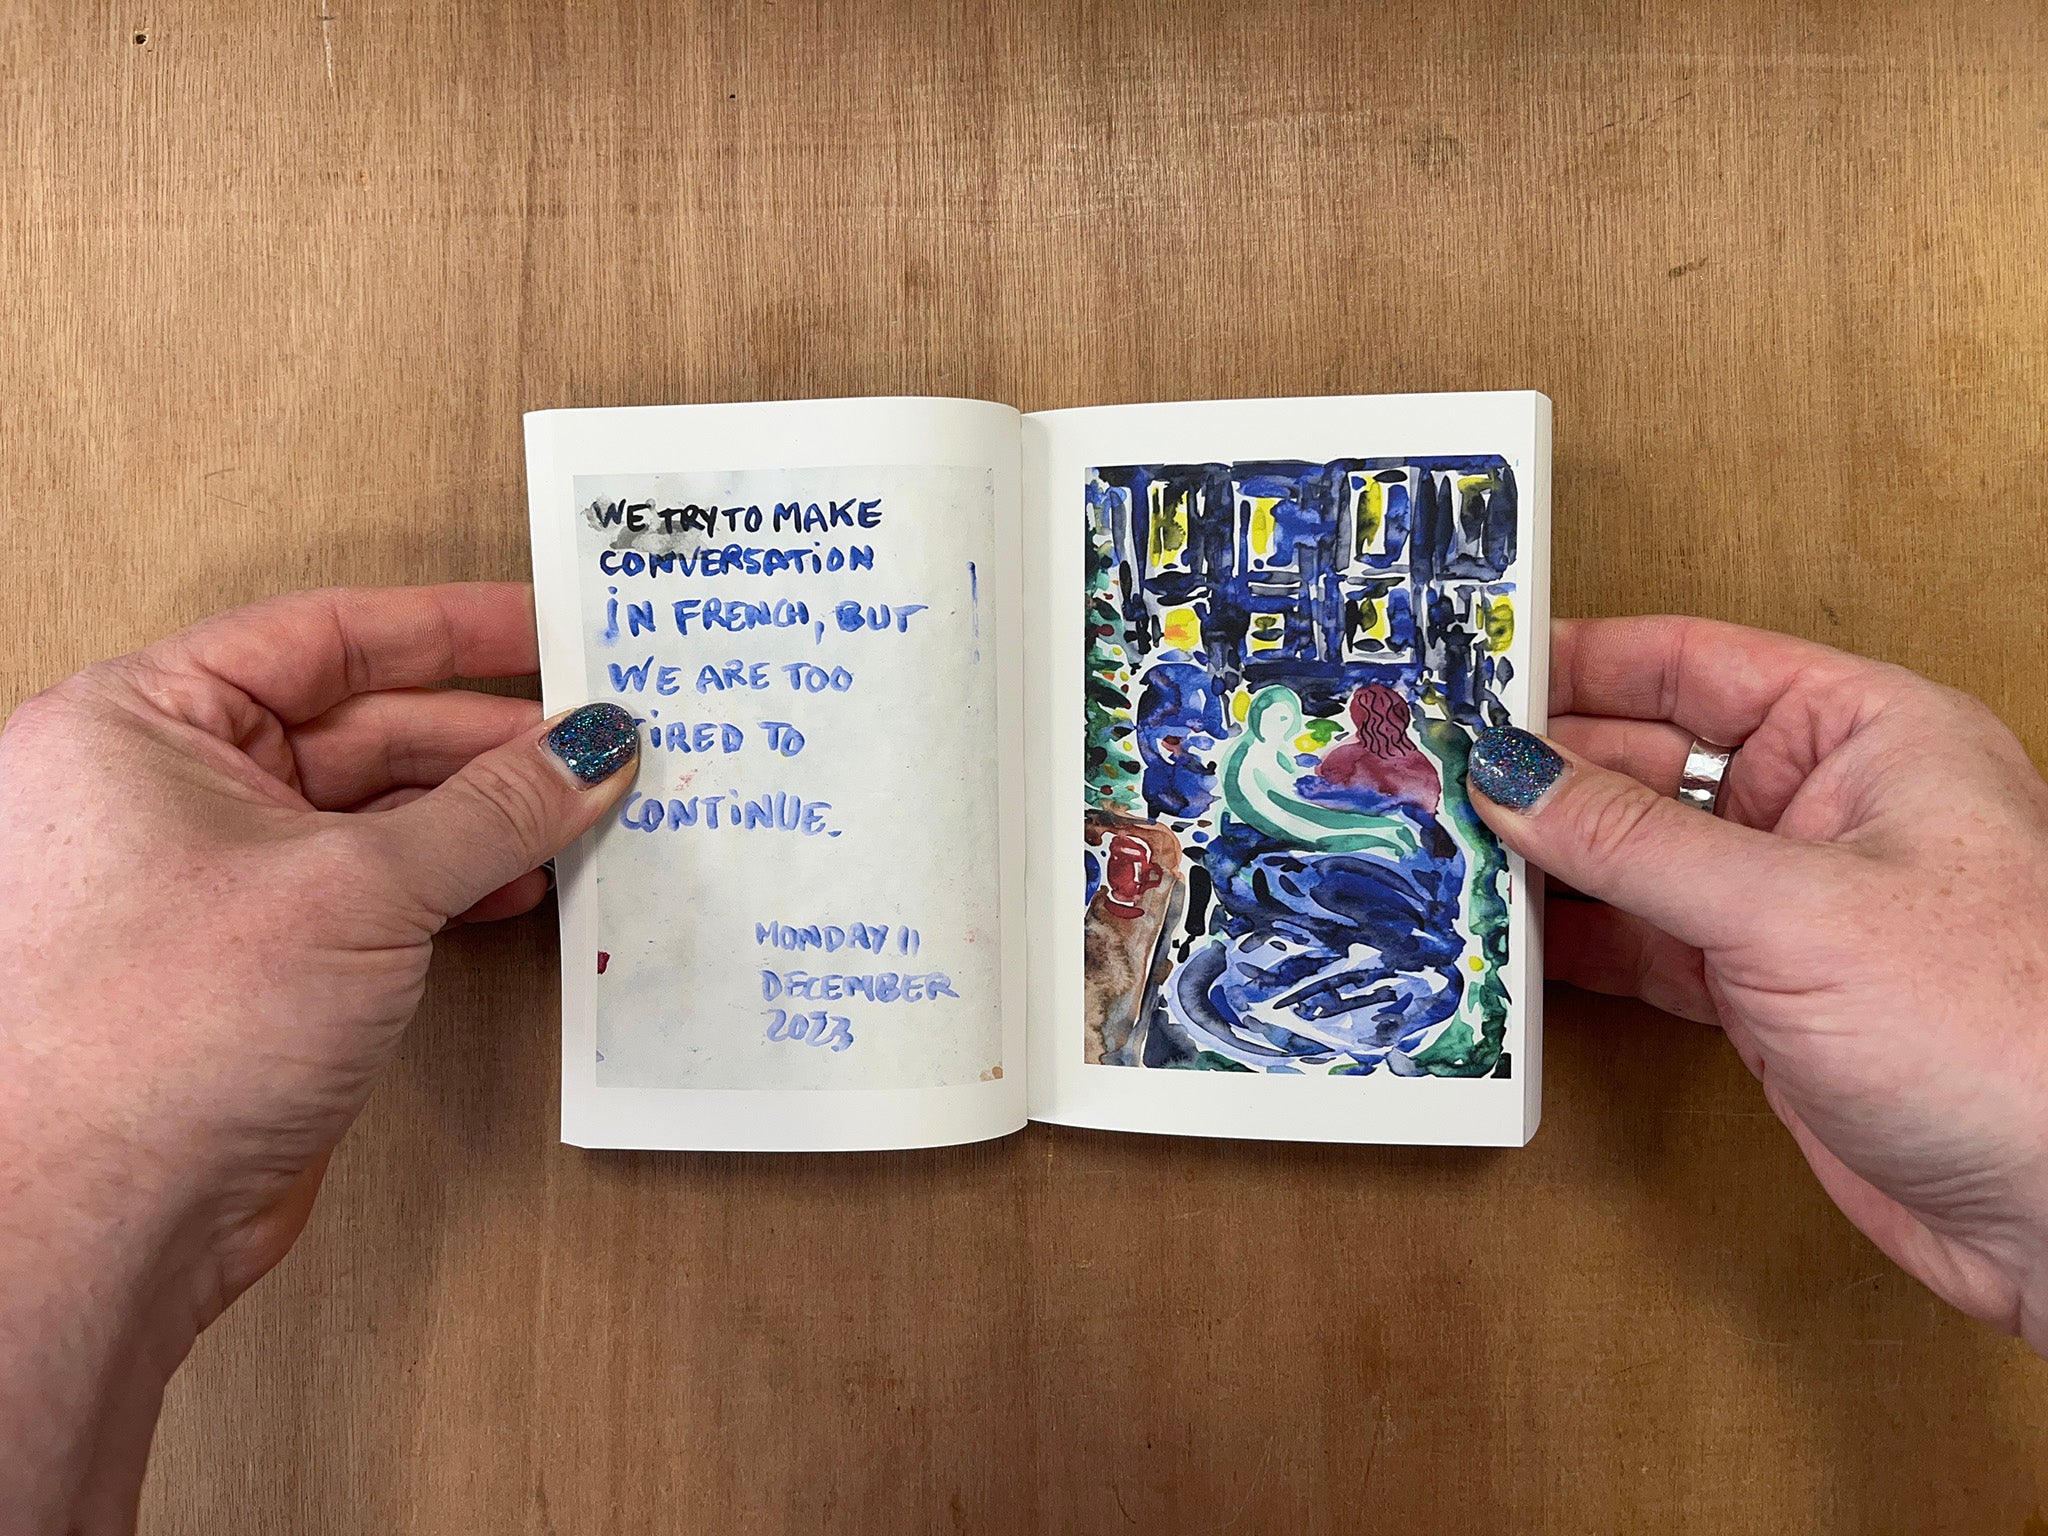 WE TRY TO MAKE
CONVERSATION
IN FRENCH, BUT
WE ARE TOO
TIRED TO
CONTINUE.
MONDAY 11
DECEMBER
2023